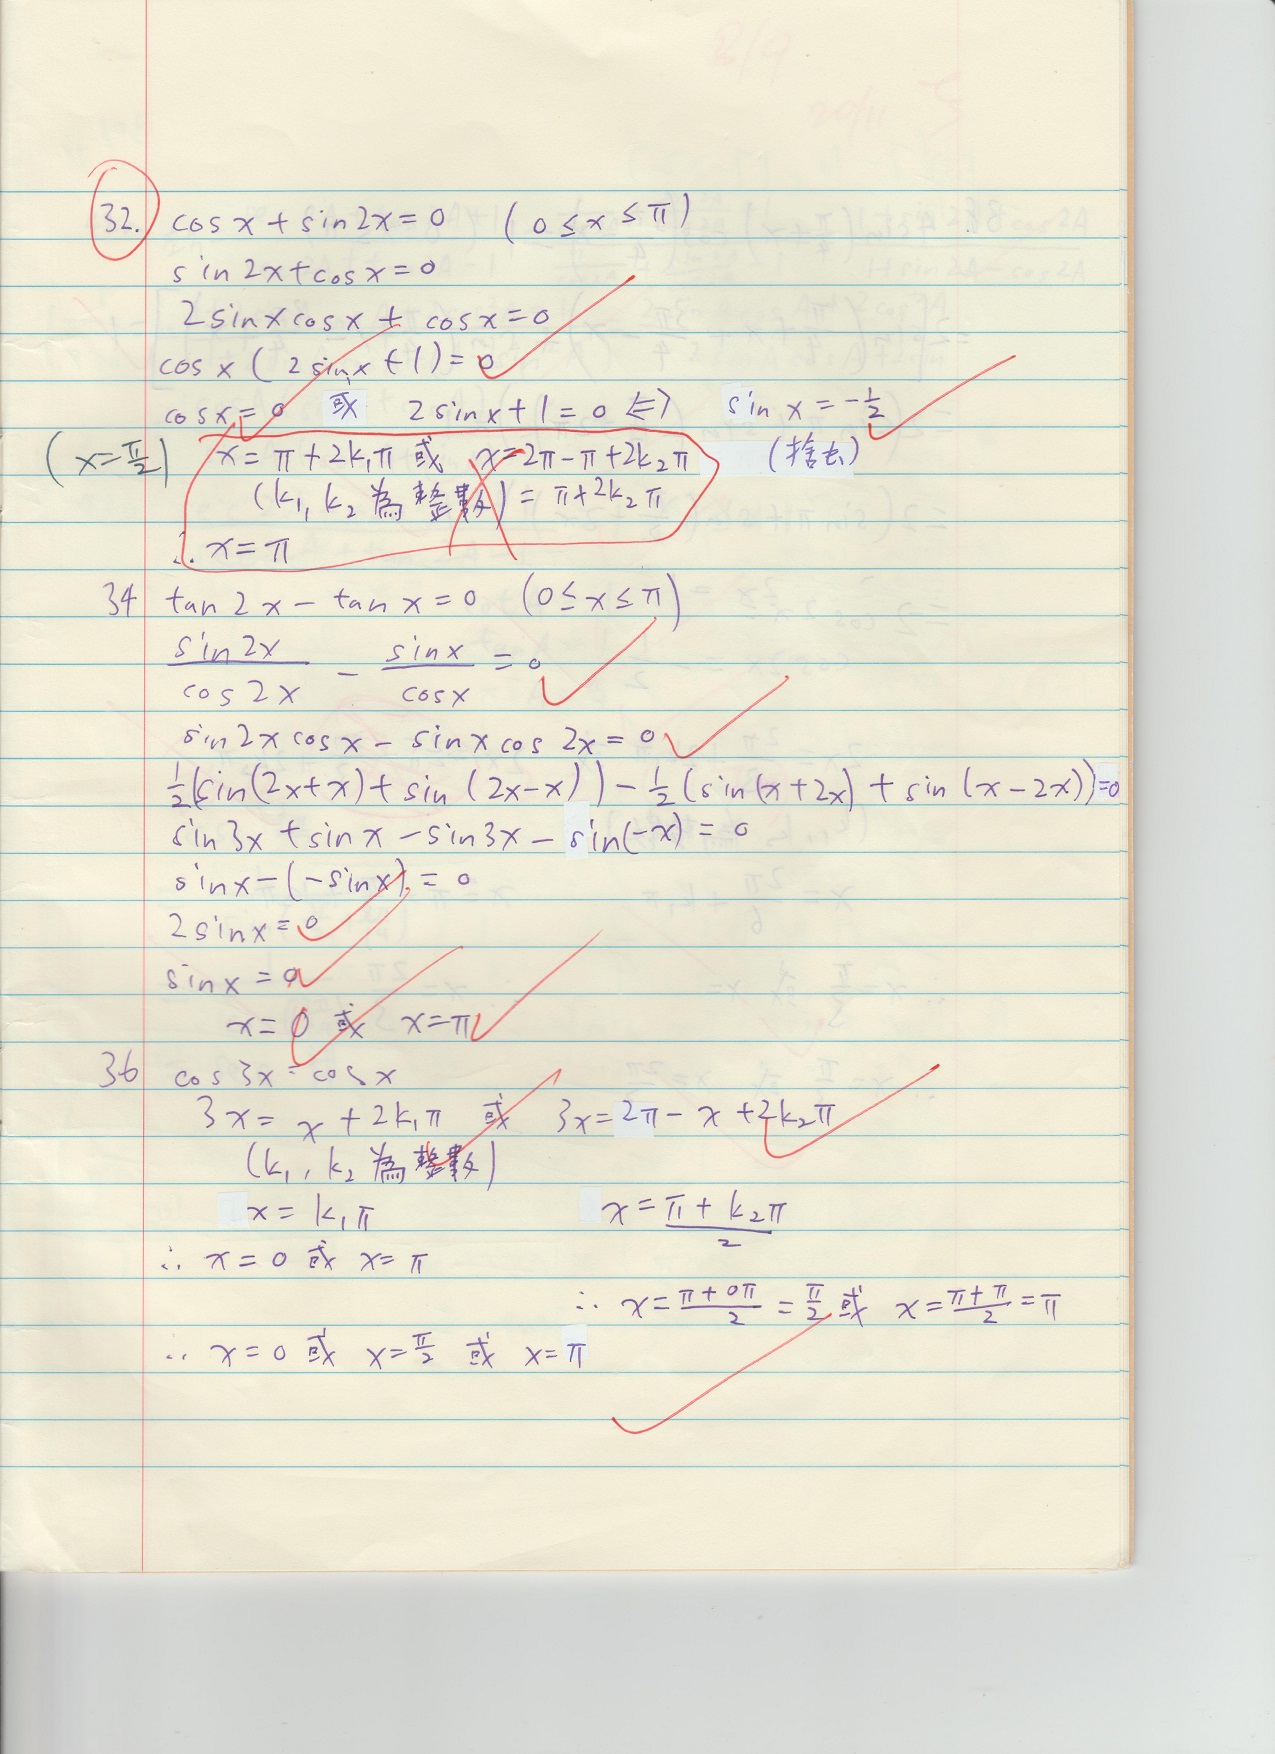 32. cos x + sin 2x = 0 (0 ≤ x ≤ π)
sin 2x + cos x = 0
2 sin x cos x + cos x = 0
cos x ( 2 sin x + 1 ) = 0
cos x = 0 或 2 sin x + 1 = 0 ⇔ sin x = -1/2
(x = π/2) x = π + 2k₁π 或 x = 2π - π + 2k₂π (捨去)
(k₁, k₂ 為整數) = π + 2k₂π
∴ x = π
34 tan 2x - tan x = 0 (0 ≤ x ≤ π)
sin 2x / cos 2x - sin x / cos x = 0
sin 2x cos x - sin x cos 2x = 0
1/2 (sin (2x+x) + sin (2x-x)) - 1/2 (sin (x+2x) + sin (x-2x)) = 0
sin 3x + sin x - sin 3x - sin(-x) = 0
sin x - (-sin x) = 0
2 sin x = 0
sin x = 0
x = 0 或 x = π
36 cos 3x = cos x
3x = x + 2k₁π 或 3x = 2π - x + 2k₂π
(k₁, k₂ 為整數)
x = k₁π x = (π + k₂π)/2
∴ x = 0 或 x = π
∴ x = (π + 0π)/2 = π/2 或 x = (π + π)/2 = π
∴ x = 0 或 x = π/2 或 x = π